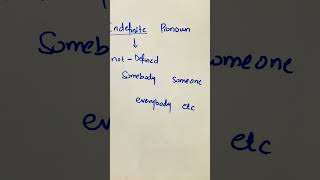 Indefinite Pronoun
↓
not - Defined
Somebody someone
everybody etc